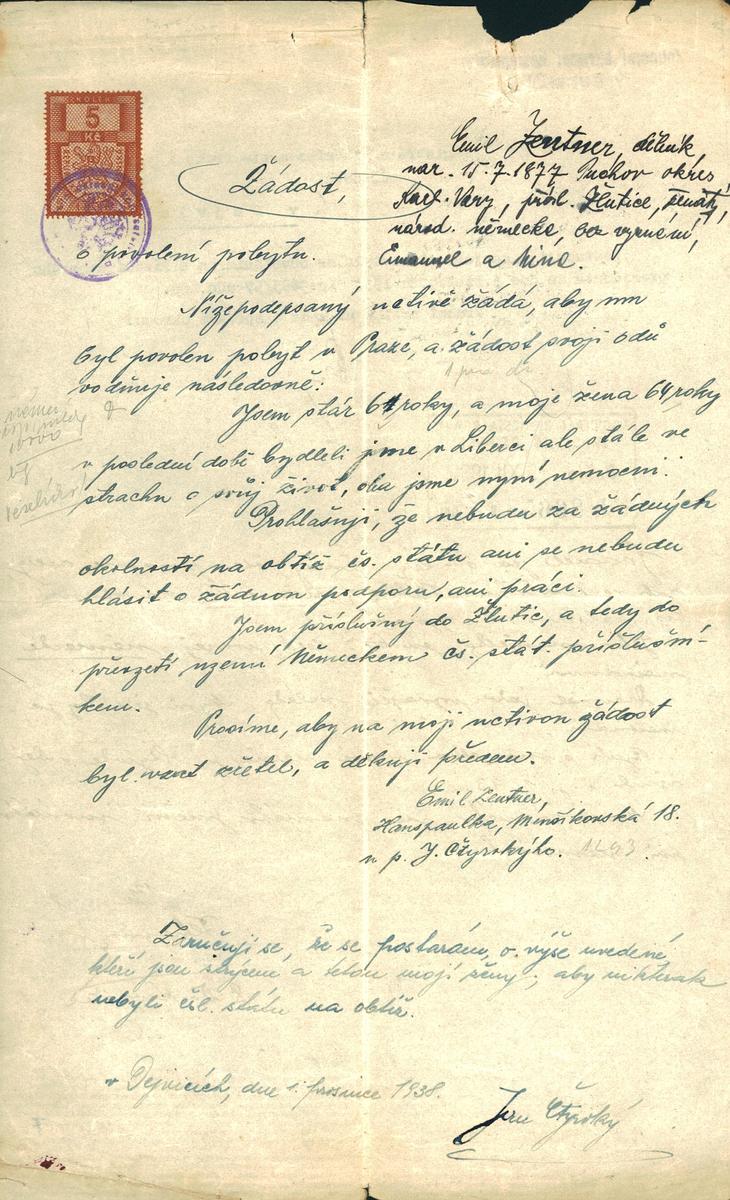 KOLEK
5
Kč
Emil Zentner, dělník
nar. 15.7.1877 Puchov okres
Karl. Vary, přísl. Žlutice, ženatý,
národ. německé, bez vyznání,
Emanuel a Mina.
Žádost,
o povolení pobytu.
Nížepodepsaný uctivě žádá, aby mu
byl povolen pobyt v Praze, a žádost svoji odů
vodňuje následovně:
Jsem stár 61 roky, a moje žena 64 roky
v poslední době bydleli jsme v Liberci ale stále ve
strachu o svůj život, oba jsme nyní nemocni.
Prohlašuji, že nebudu za žádných
okolností na obtíž čs. státu ani se nebudu
hlásit o žádnou podporu, ani práci.
Jsem příslušný do Žlutic, a tedy do
převzetí území Německem čs. stát. příslušní-
kem.
Prosíme, aby na moji uctivou žádost
byl vzat zřetel, a děkuji předem.
Emil Zentner,
Hanspaulka, Na
18.
u p. J. Čtyrokýho. 1293
Zaručuji se, že se postarám, o výše uvedené,
kteří jsou strýcem a tetou mojí ženy, aby nikterak
nebyli čsl. státu na obtíž.
v Dejvicích, dne 1. prosince 1938.
Čtyroký